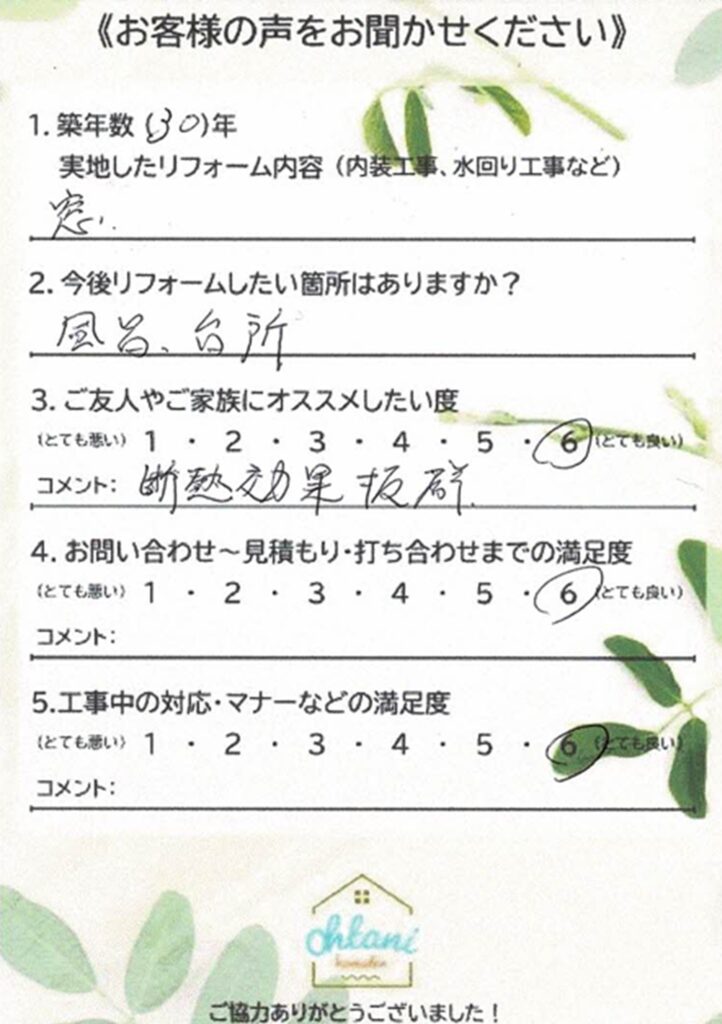 《お客様の声をお聞かせください》
1. 築年数 (30)年
実地したリフォーム内容 (内装工事、水回り工事など)
窓.
2. 今後リフォームしたい箇所はありますか?
風呂、台所
3. ご友人やご家族にオススメしたい度
(とても悪い) 1 ・ 2 ・ 3 ・ 4 ・ 5 ・ 6 (とても良い)
コメント: 断熱効果抜群.
4. お問い合わせ～見積もり・打ち合わせまでの満足度
(とても悪い) 1 ・ 2 ・ 3 ・ 4 ・ 5 ・ 6 (とても良い)
コメント:
5.工事中の対応・マナーなどの満足度
(とても悪い) 1 ・ 2 ・ 3 ・ 4 ・ 5 ・ 6 (とても良い)
コメント:
Ohtani
ご協力ありがとうございました!